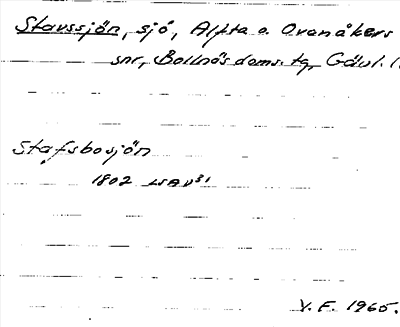 Stavssjön, sjö, Alfta o. Ovanåkers
snr, Bollnäs doms. tg, Gävl. l.
Stafsbosjön
1802 LSA
V. F. 1965.